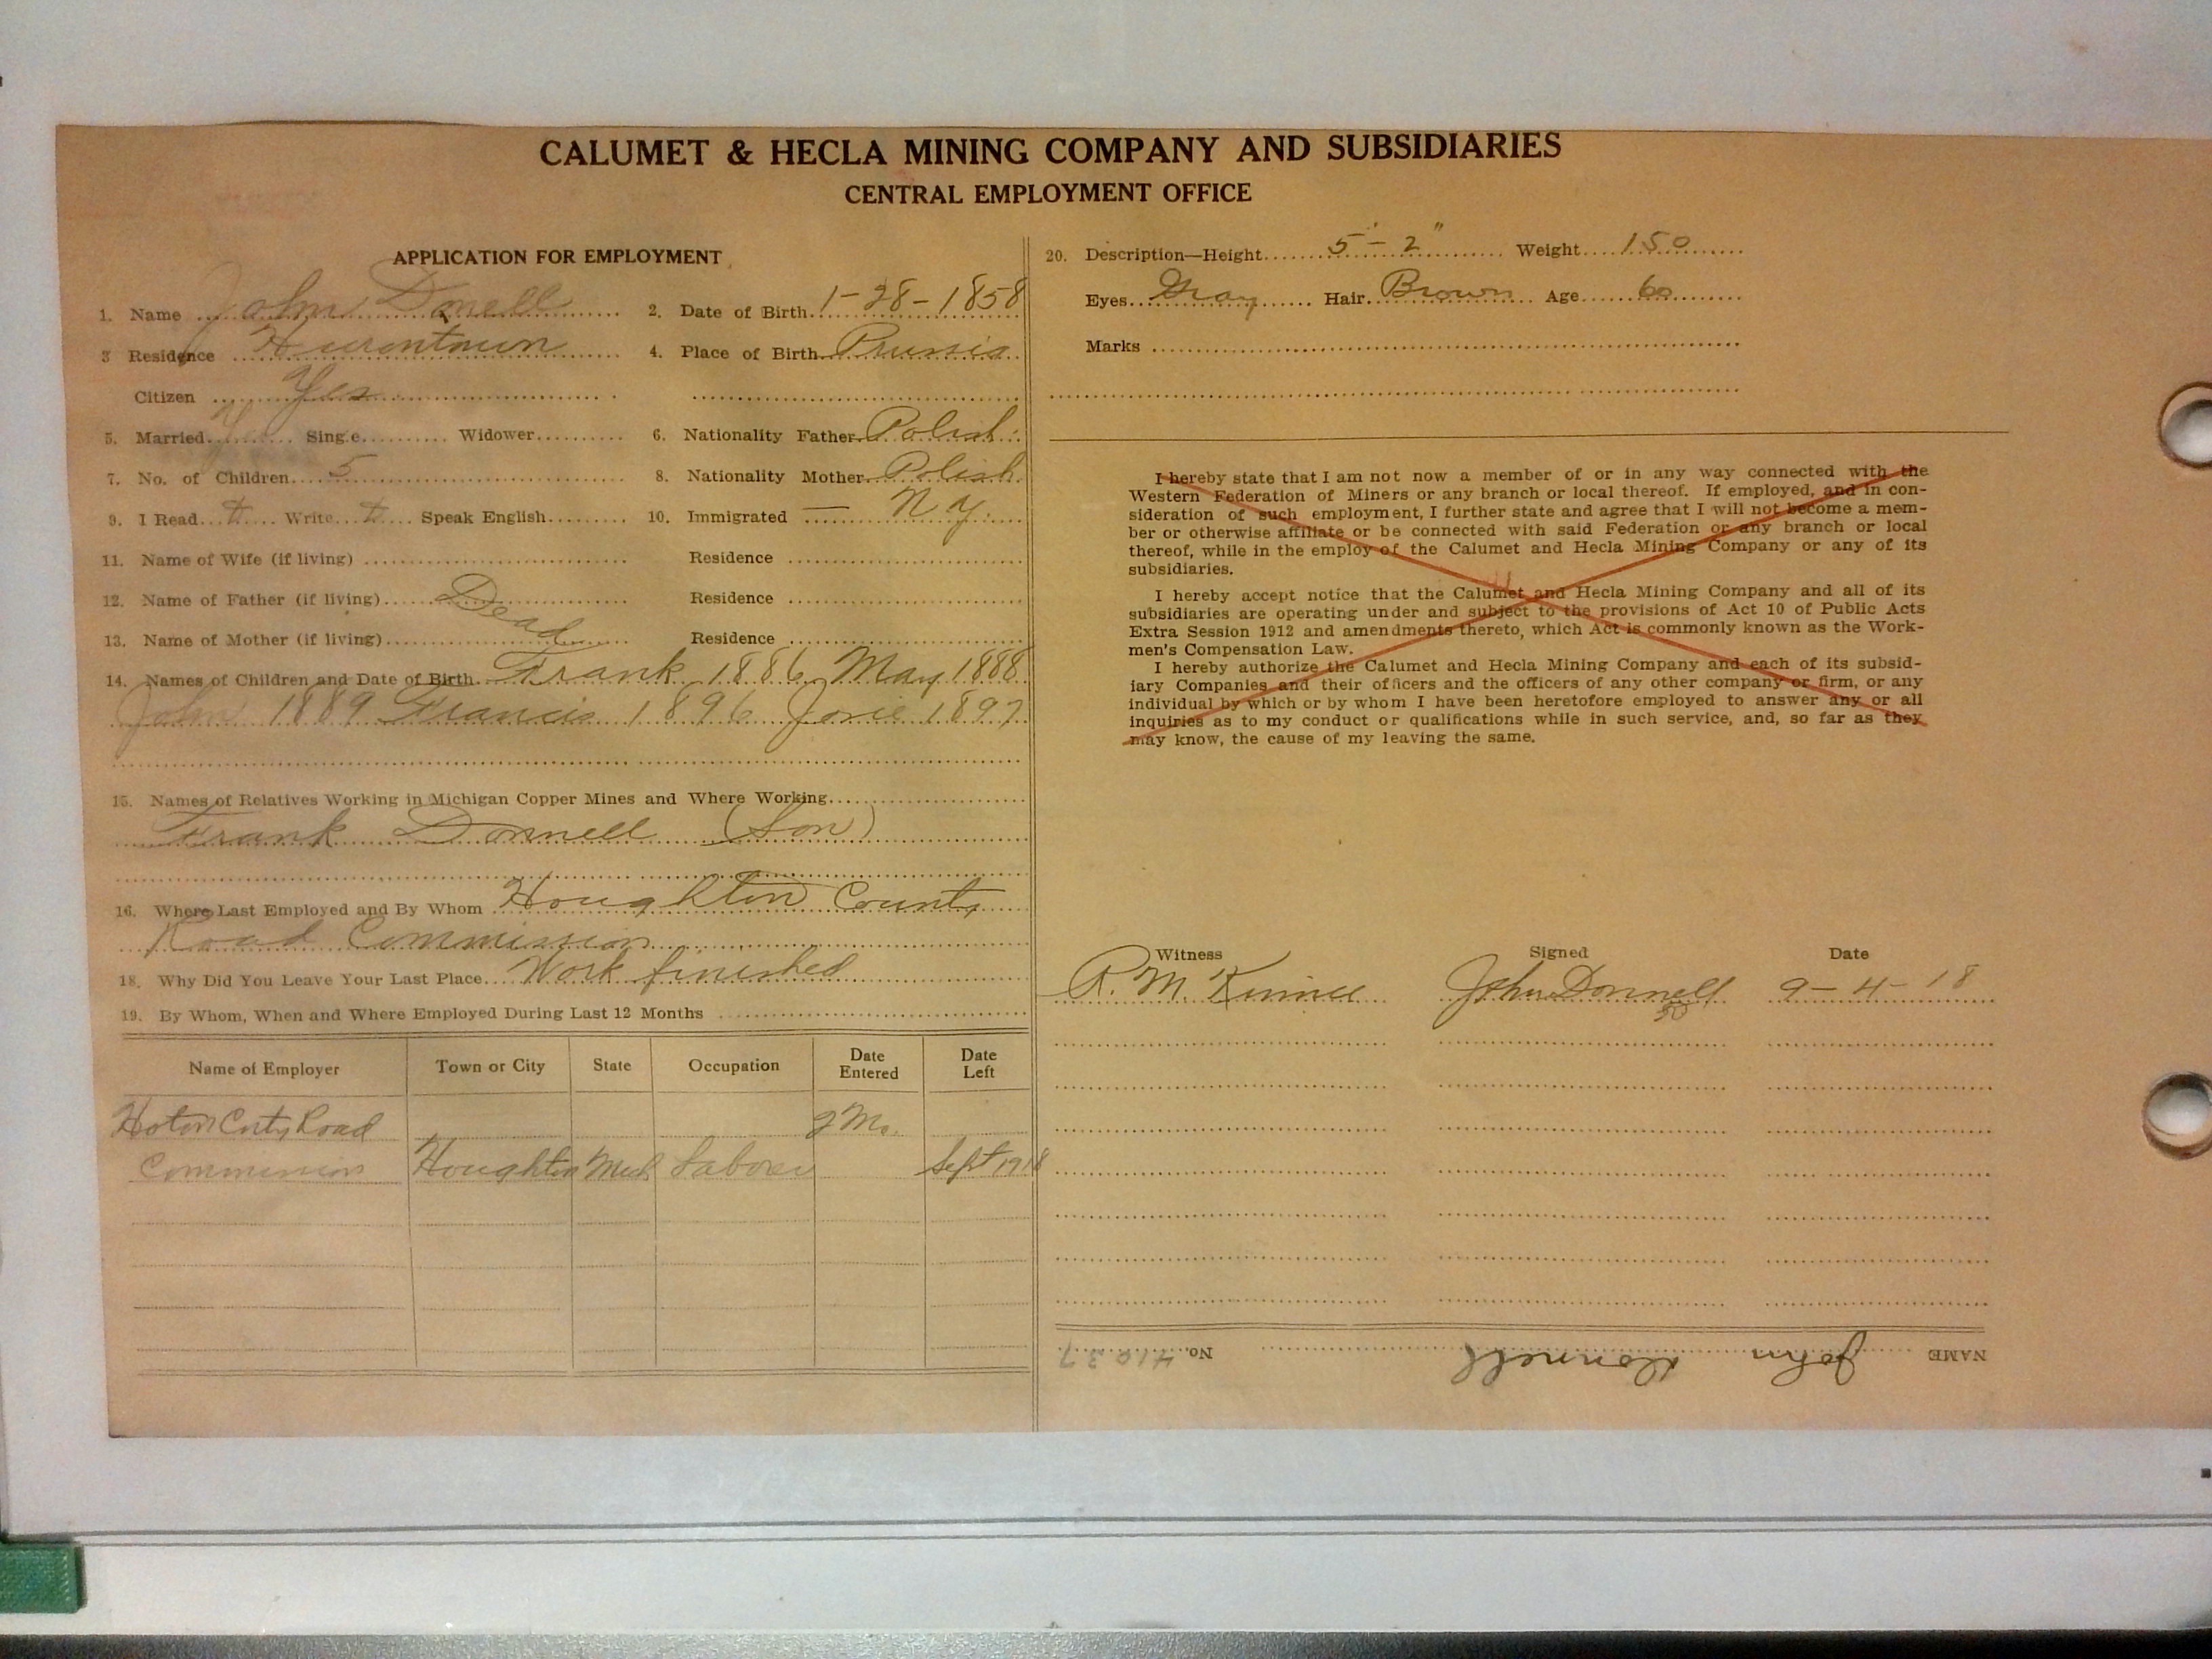 CALUMET & HECLA MINING COMPANY AND SUBSIDIARIES
CENTRAL EMPLOYMENT OFFICE
APPLICATION FOR EMPLOYMENT
1. Name John Donell 2. Date of Birth 1-28-1858
3 Residence Hurontown 4. Place of Birth Prussia
Citizen Yes
5. Married Y Single Widower 6. Nationality Father Polish
7. No. of Children 5 8. Nationality Mother Polish
9. I Read Write Speak English 10. Immigrated — N.Y.
11. Name of Wife (if living) Residence
12. Name of Father (if living) Dead Residence
13. Name of Mother (if living) Residence
14. Names of Children and Date of Birth Frank 1886 May 1888
John 1889 Francis 1896 Josie 1897
15. Names of Relatives Working in Michigan Copper Mines and Where Working
Frank Donnell (Son)
16. Where Last Employed and By Whom Houghton County
Road Commission
18. Why Did You Leave Your Last Place Work finished
19. By Whom, When and Where Employed During Last 12 Months
Name of Employer Town or City State Occupation Date Entered Date Left
Hoton Cnty Road 2 Mo.
Commission Houghton Mich Laborer Sept 1918
20. Description—Height 5'-2" Weight 150
Eyes Gray Hair Brown Age 60
Marks
I hereby state that I am not now a member of or in any way connected with the
Western Federation of Miners or any branch or local thereof. If employed, and in con-
sideration of such employment, I further state and agree that I will not become a mem-
ber or otherwise affiliate or be connected with said Federation or any branch or local
thereof, while in the employ of the Calumet and Hecla Mining Company or any of its
subsidiaries.
I hereby accept notice that the Calumet and Hecla Mining Company and all of its
subsidiaries are operating under and subject to the provisions of Act 10 of Public Acts
Extra Session 1912 and amendments thereto, which Act is commonly known as the Work-
men's Compensation Law.
I hereby authorize the Calumet and Hecla Mining Company and each of its subsid-
iary Companies and their officers and the officers of any other company or firm, or any
individual by which or by whom I have been heretofore employed to answer any or all
inquiries as to my conduct or qualifications while in such service, and, so far as they
may know, the cause of my leaving the same.
Witness Signed Date
R. M. John Donnell 9-4-18
NAME John Donnell No. 41037